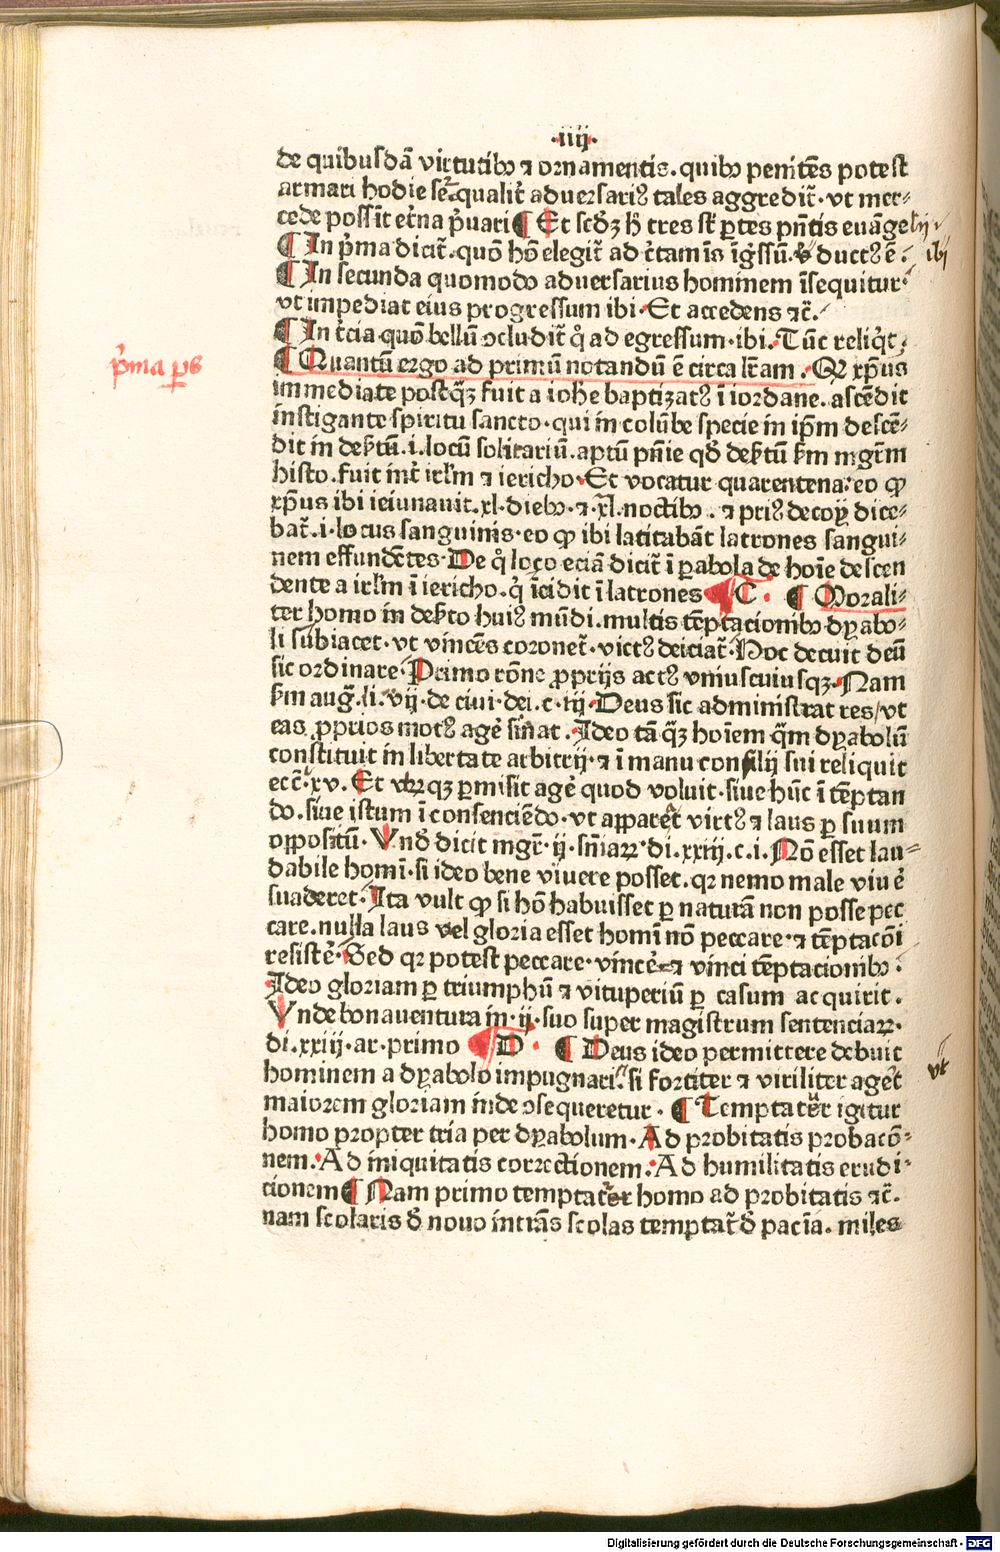 ·iiij·
de quibusdā virtutibꝫ ⁊ ornamentis. quibꝫ penitēs potest
armari hodie sꝫ qualiť aduersariꝰ tales aggrediť· vt mer-
cede possīt eťna p̄uari ¶ Et scd̄ꝫ h̄ tres st̄ ꝑtes pn̄tis euāgelij
¶ In p̄ma diciť. quō hō elegiť ad c̄tamīs īgssū. ductꝰ ē· ibi
¶ In secunda quomodo aduersarius hominem īsequitur
vt impediat eius progressum ibi· Et accedens ⁊c̄.
¶ In ťcia quō bellū ↄcludiť q̄ ad egressum·ibi. Tūc reliq̇t
¶ Quantū ergo ad primū notandū ē circa lr̄am. Qꝛ xp̄us
p̄ma ꝑs
immediate postq̄ꝫ fuit a ioh̄e baptizatꝰ ī iordane. ascēdit
instigante spiritu sancto· qui in colūbe specie in ip̄m descē-
dit in deẜtū.i. locū solitariū. aptū pn̄ie qd̄ deẜtū ẜm mgr̄m
histo. fuit inť irl̄m ⁊ iericho· Et vocatur quarentena: eo ꝙ
xp̄us ibi ieiunauit. xl· diebꝫ·⁊·xl. noctibꝫ. ⁊ priꝰ decoꝝ dice-
bať.i·locus sanguinis·eo ꝙ ibi latitabāt latrones sangui-
nem effundētes· De q̊ loco eciā diciť ī ꝑabola de hoīe descen
dente a irl̄m ī iericho. q̇ īcidit ī latrones C. ¶ Morali-
ter homo in deẜto huiꝰ mūdi. multis tēptacionibꝫ dyabo-
li subiacet· vt vincēs coroneť. victꝰ deiciať· Hoc decuit deū
sic ordinare· Primo rōne ꝓprijs actꝰ vniuscuiusqꝫ· Nam
ẜm auḡ. li. vij·de ciui·dei.c·iij· Deus sic administrat res/vt
eas ꝓprios motꝰ agē sinat. Ideo tā q̄ꝫ hoīem q̄m dyabolū
constituit in libertate arbitrij·⁊ ī manu consilij sui reliquit
ecc̄·xv. Et vtrūqꝫ ꝑmisit agē quod voluit·siue hūc ī tēptan
do. siue istum ī consenciēdo· vt appareť virtꝰ ⁊ laus ꝑ suum
oppositū. Vnd̄ dicit mgr̄·ij·sn̄iaꝝ·di.xxiij.c.i. Nō esset lau-
dabile homī·si ideo bene viuere posset. qꝛ nemo male viuē
suaderet· Ita vult ꝙ si hō habuisset ꝑ naturā non posse pec
care. nulla laus vel gloria esset homī nō peccare·⁊ tēptacōi
resistē· Sed qꝛ potest peccare·vincē ⁊ vinci tēptacionibꝫ·
Ideo gloriam ꝑ triumphū ⁊ vituperiū ꝑ casum acquirit.
Vnde bonauentura in·ij·suo super magistrum sentenciaꝝ·
di.xxiij·ar·primo D· ¶ Deus ideo permittere debuit
hominem a dyabolo impugnari. vt si fortiter ⁊ viriliter ageť
maiorem gloriam inde ↄsequeretur· ¶ Temptatur igitur
homo propter tria per dyabolum· Ad probitatis probacō-
nem. Ad iniquitatis correctionem. Ad humilitatis erudi-
cionem ¶ Nam primo temptatur homo ad probitatis ⁊c̄.
nam scolaris d̄ nouo intrās scolas temptať d̄ paciā. miles
Digitalisierung gefördert durch die Deutsche Forschungsgemeinschaft - DFG